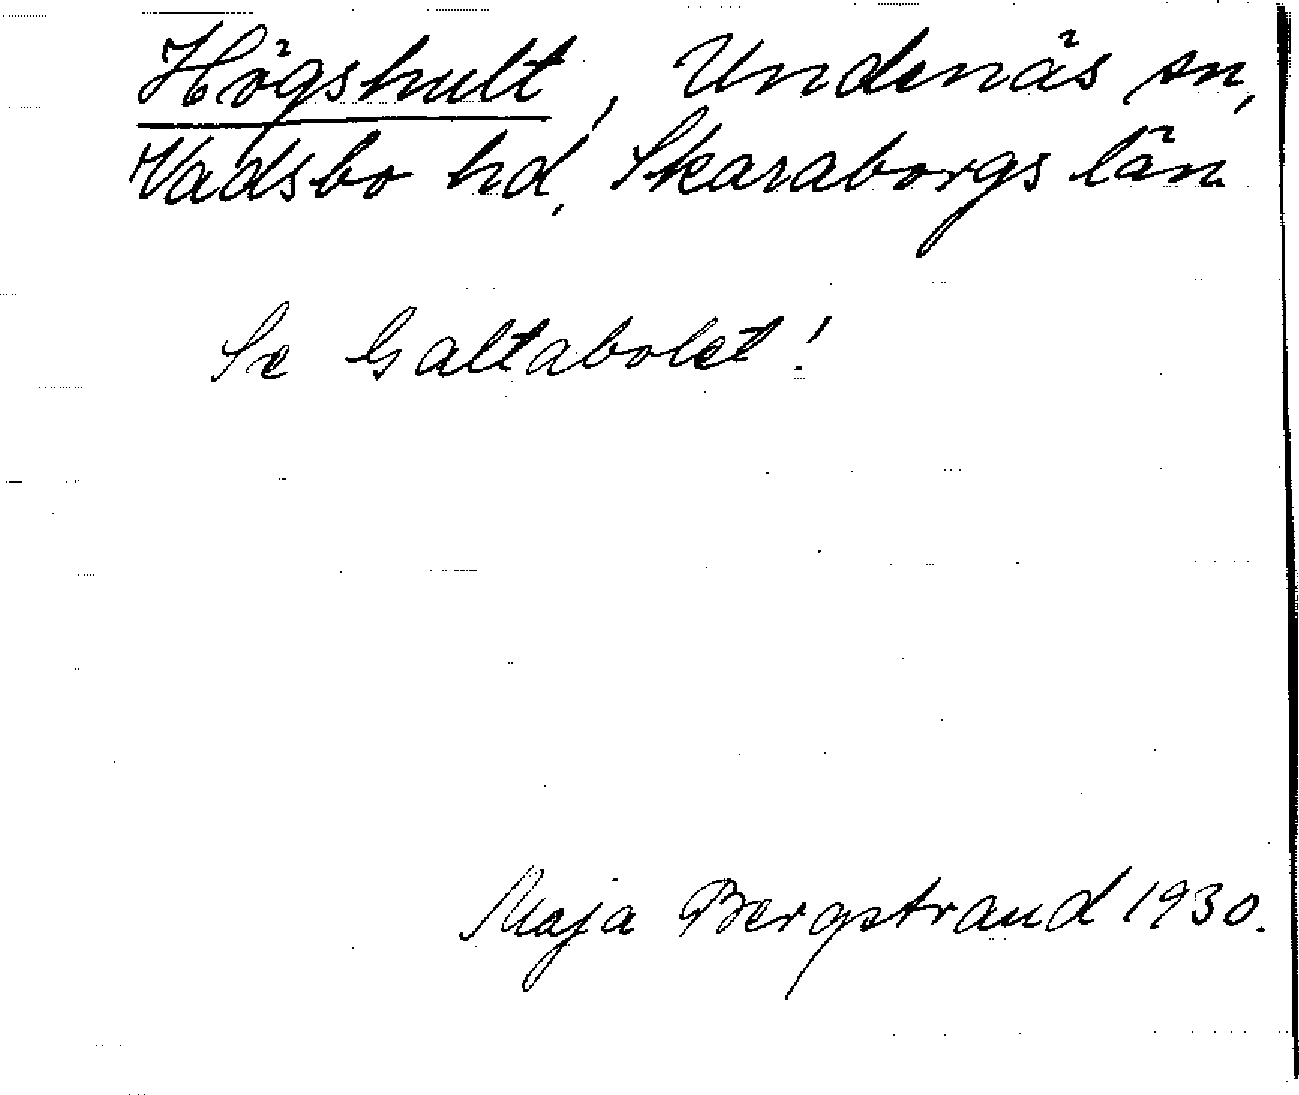 Högshult, Undenäs sn,
Vadsbo hd, Skaraborgs län
Se Galtabolet!
Maja Bergstrand 1930.